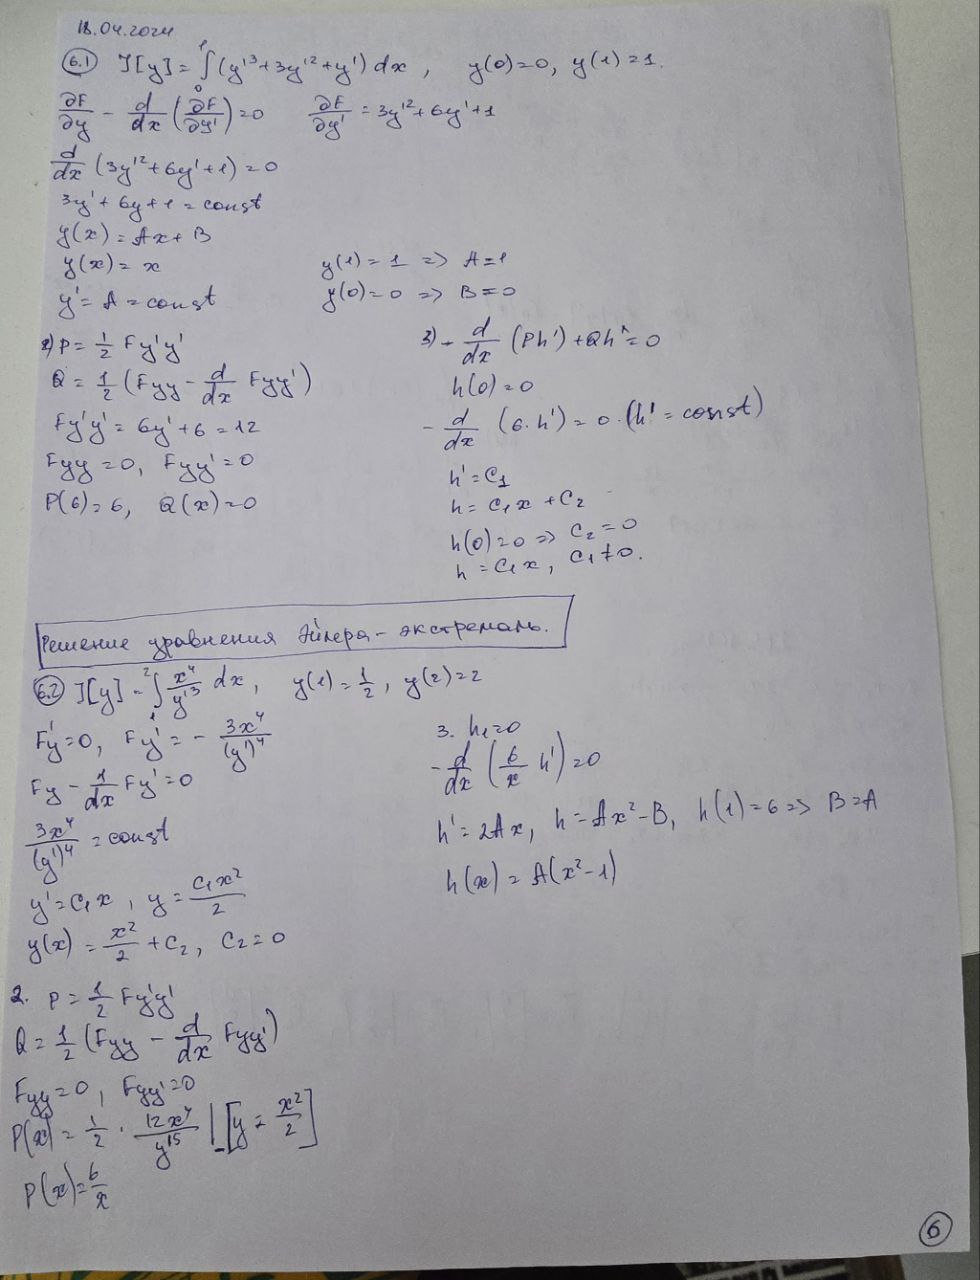 18.04.2024
6.1 J[y] = ∫₀¹ (y'³ + 3y'² + y') dx, y(0)=0, y(1)=1.
∂F/∂y − d/dx (∂F/∂y') = 0 ∂F/∂y' = 3y'² + 6y' + 1
d/dx (3y'² + 6y' + 1) = 0
3y' + 6y + 1 = const
y(x) = Ax + B
y(x) = x y(1) = 1 => A = 1
y' = A = const y(0) = 0 => B = 0
2) P = 1/2 Fy'y'
Q = 1/2 (Fyy − d/dx Fyy')
Fy'y' = 6y' + 6 = 12
Fyy = 0, Fyy' = 0
P(6) = 6, Q(x) = 0
3) − d/dx (Ph') + Qh = 0
h(0) = 0
− d/dx (6·h') = 0. (h' = const)
h' = C₁
h = C₁x + C₂
h(0) = 0 => C₂ = 0
h = C₁x, C₁ ≠ 0.
Решение уравнения Эйлера - экстремаль.
6.2 J[y] = ∫₁² x⁴/y'³ dx, y(1) = 1/2, y(2) = 2
F'y = 0, Fy' = − 3x⁴/(y')⁴
Fy − 1/dx Fy' = 0
3x⁴/(y')⁴ = const
y' = C₁x, y = C₁x²/2
y(x) = x²/2 + C₂, C₂ = 0
2. P = 1/2 Fy'y'
Q = 1/2 (Fyy − d/dx Fyy')
Fyy = 0, Fyy' = 0
P(x) = 1/2 · 12x⁴/y'⁵ | [y = x²/2]
P(x) = 6/x
3. h₁ = 0
− d/dx (6/x h') = 0
h' = 2Ax, h = Ax² − B, h(1) = 6 => B = A
h(x) = A(x² − 1)
6